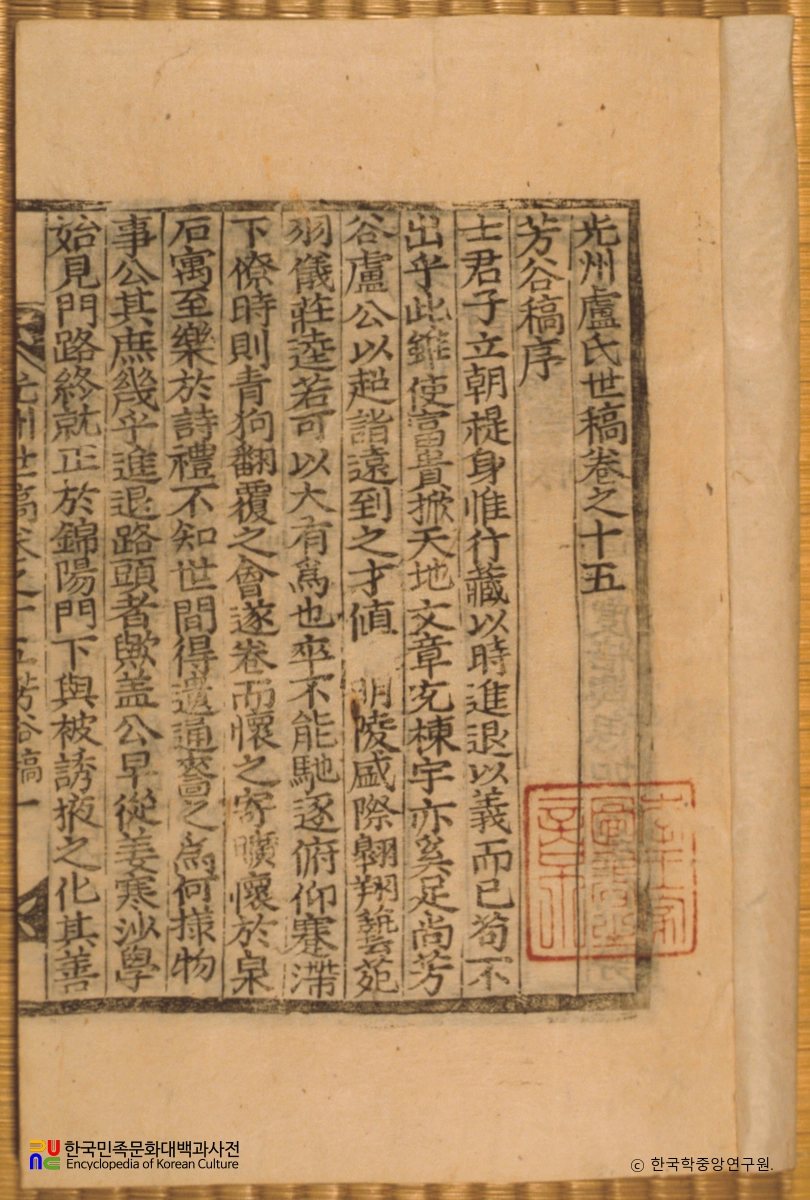 光州盧氏世稿卷之十五
芳谷稿序
士君子立朝禔身惟行藏以時進退以義而已苟不
出乎此雖使富貴掀天地文章充棟宇亦奚足尚芳
谷盧公以超詣遠到之才値 明陵盛際翺翔藝苑
羽儀莊逵若可以大有爲也卒不能馳逐俯仰蹇滯
下僚時則靑狗翻覆之會遂卷而懷之寄曠懷於泉
石寓至樂於詩禮不知世間得邅通嗇之爲何樣物
事公其庶幾乎進退路頭者歟盖公早從姜寒沙學
始見門路終就正於錦陽門下與被誘掖之化其善
光州世稿卷之十五 芳谷稿 一
한국민족문화대백과사전
Encyclopedia of Korean Culture
ⓒ 한국학중앙연구원.